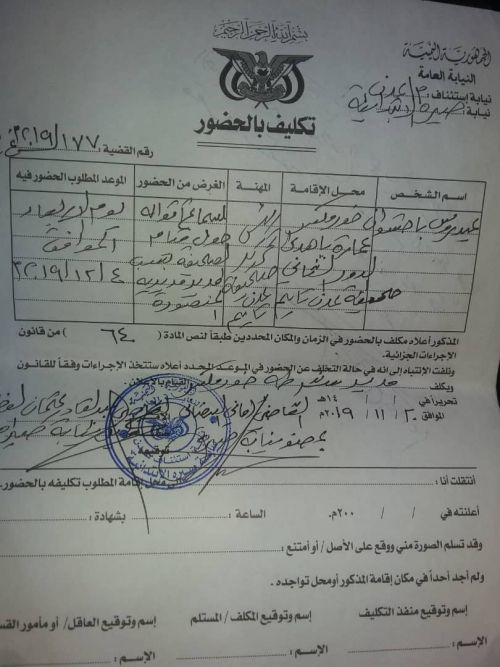 بسم الله الرحمن الرحيم
الجمهورية اليمنية
النيابة العامة
نيابة إستئناف: م/عدن
نيابة: صيرة الابتدائية
تكليف بالحضور
رقم القضية: ١٧٧/٢٠١٩م
اسم الشخص
محل الإقامة
المهنة
الغرض من الحضور
الموعد المطلوب الحضور فيه
عيدروس باحشوان
خورمكسر
عمارة باهدى
الدور الثاني
صحيفة عدن تايم
رئيس
تحرير
صحيفة
عدن
تايم
لسماع أقواله
حول
يوم الأربعاء
الموافق
٤/١٢/٢٠١٩م
المذكور أعلاه مكلف بالحضور في الزمان والمكان المحددين طبقاً لنص المادة ( ٦٤ ) من قانون
الإجراءات الجزائية.
ونلفت الإنتباه إلى انه في حالة التخلف عن الحضور في الموعد المحدد أعلاه ستتخذ الإجراءات وفقاً للقانون
ويكلف مدير شرطة خورمكسر القيام بالإعلان
تحريراً في / / ١٤هـ
الموافق ٢٠/١١/٢٠١٩م
القاضي
توقيعه
انتقلت أنا: إلى محل إقامة المطلوب تكليفه بالحضور
أعلنته في / / ٢٠٠م. الساعة: بشهادة:
وقد تسلم الصورة مني ووقع على الأصل/ أو أمتنع:
ولم أجد أحداً في مكان إقامة المذكور أومحل تواجده.
إسم وتوقيع منفذ التكليف
إسم وتوقيع المكلف/ المستلم
إسم وتوقيع العاقل/ أو مأمور القسم
الإسم:
الإسم:
الإسم: